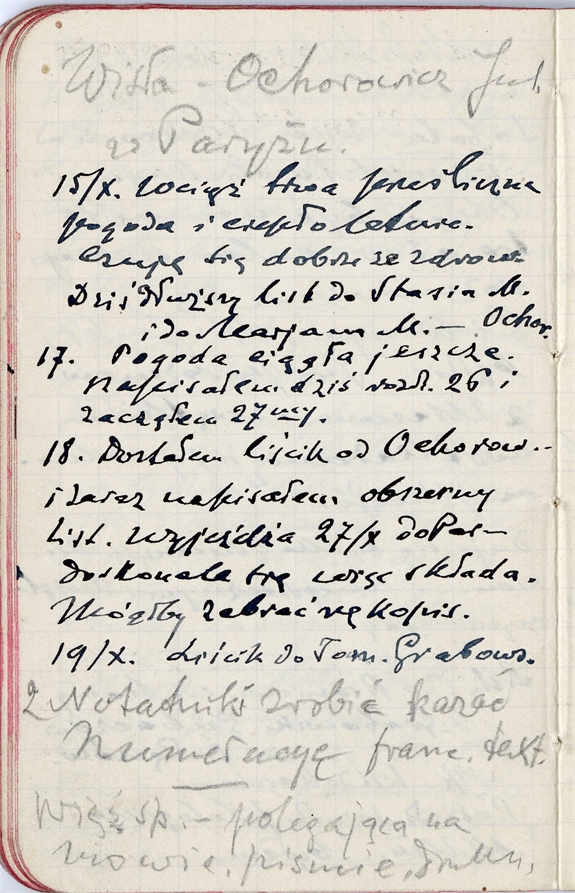 Wisła - Ochorowicz Jul
w Paryżu.
15/X. Wciąż trwa prześliczna
pogoda i ciepło letnie.
Czuję się dobrze ze zdrow.
Dziś dłuższy list do Stasia M.
i do Marjana M. — Ochor.
17. Pogoda ciągła jeszcze.
Napisałem dziś rozdz. 26 i
zacząłem 27my.
18. Dostałem liścik od Ochorow. -
i zaraz napisałem obszerny
list. Wyjeżdża 27/X do Par-
doskonale się więc składa.
Mógłby zabrać rękopis.
19/X. Liścik do Tom. Grabows.
2 Notatniki zrobić kazać
Numerację franc. text.
Więź sp. - polegająca na
mowie, piśmie, druku,